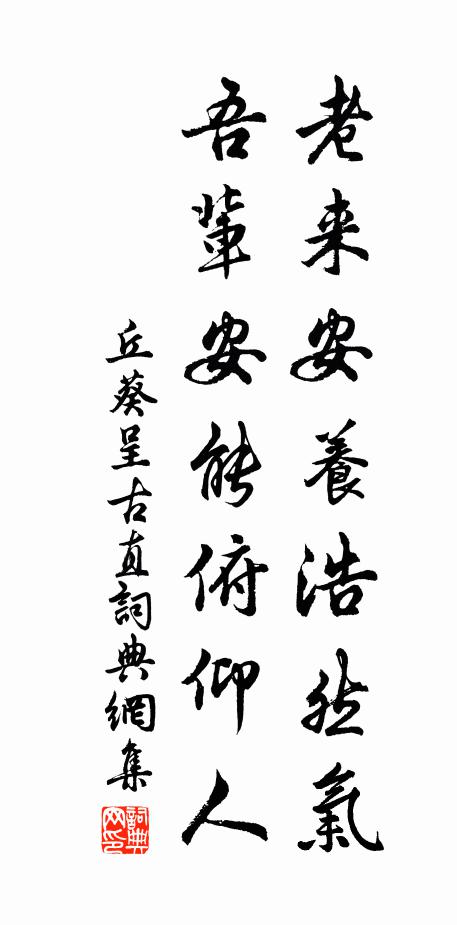 老来安養浩然氣
吾輩安能俯仰人
丘葵呈古直詞典網集
詞典网印